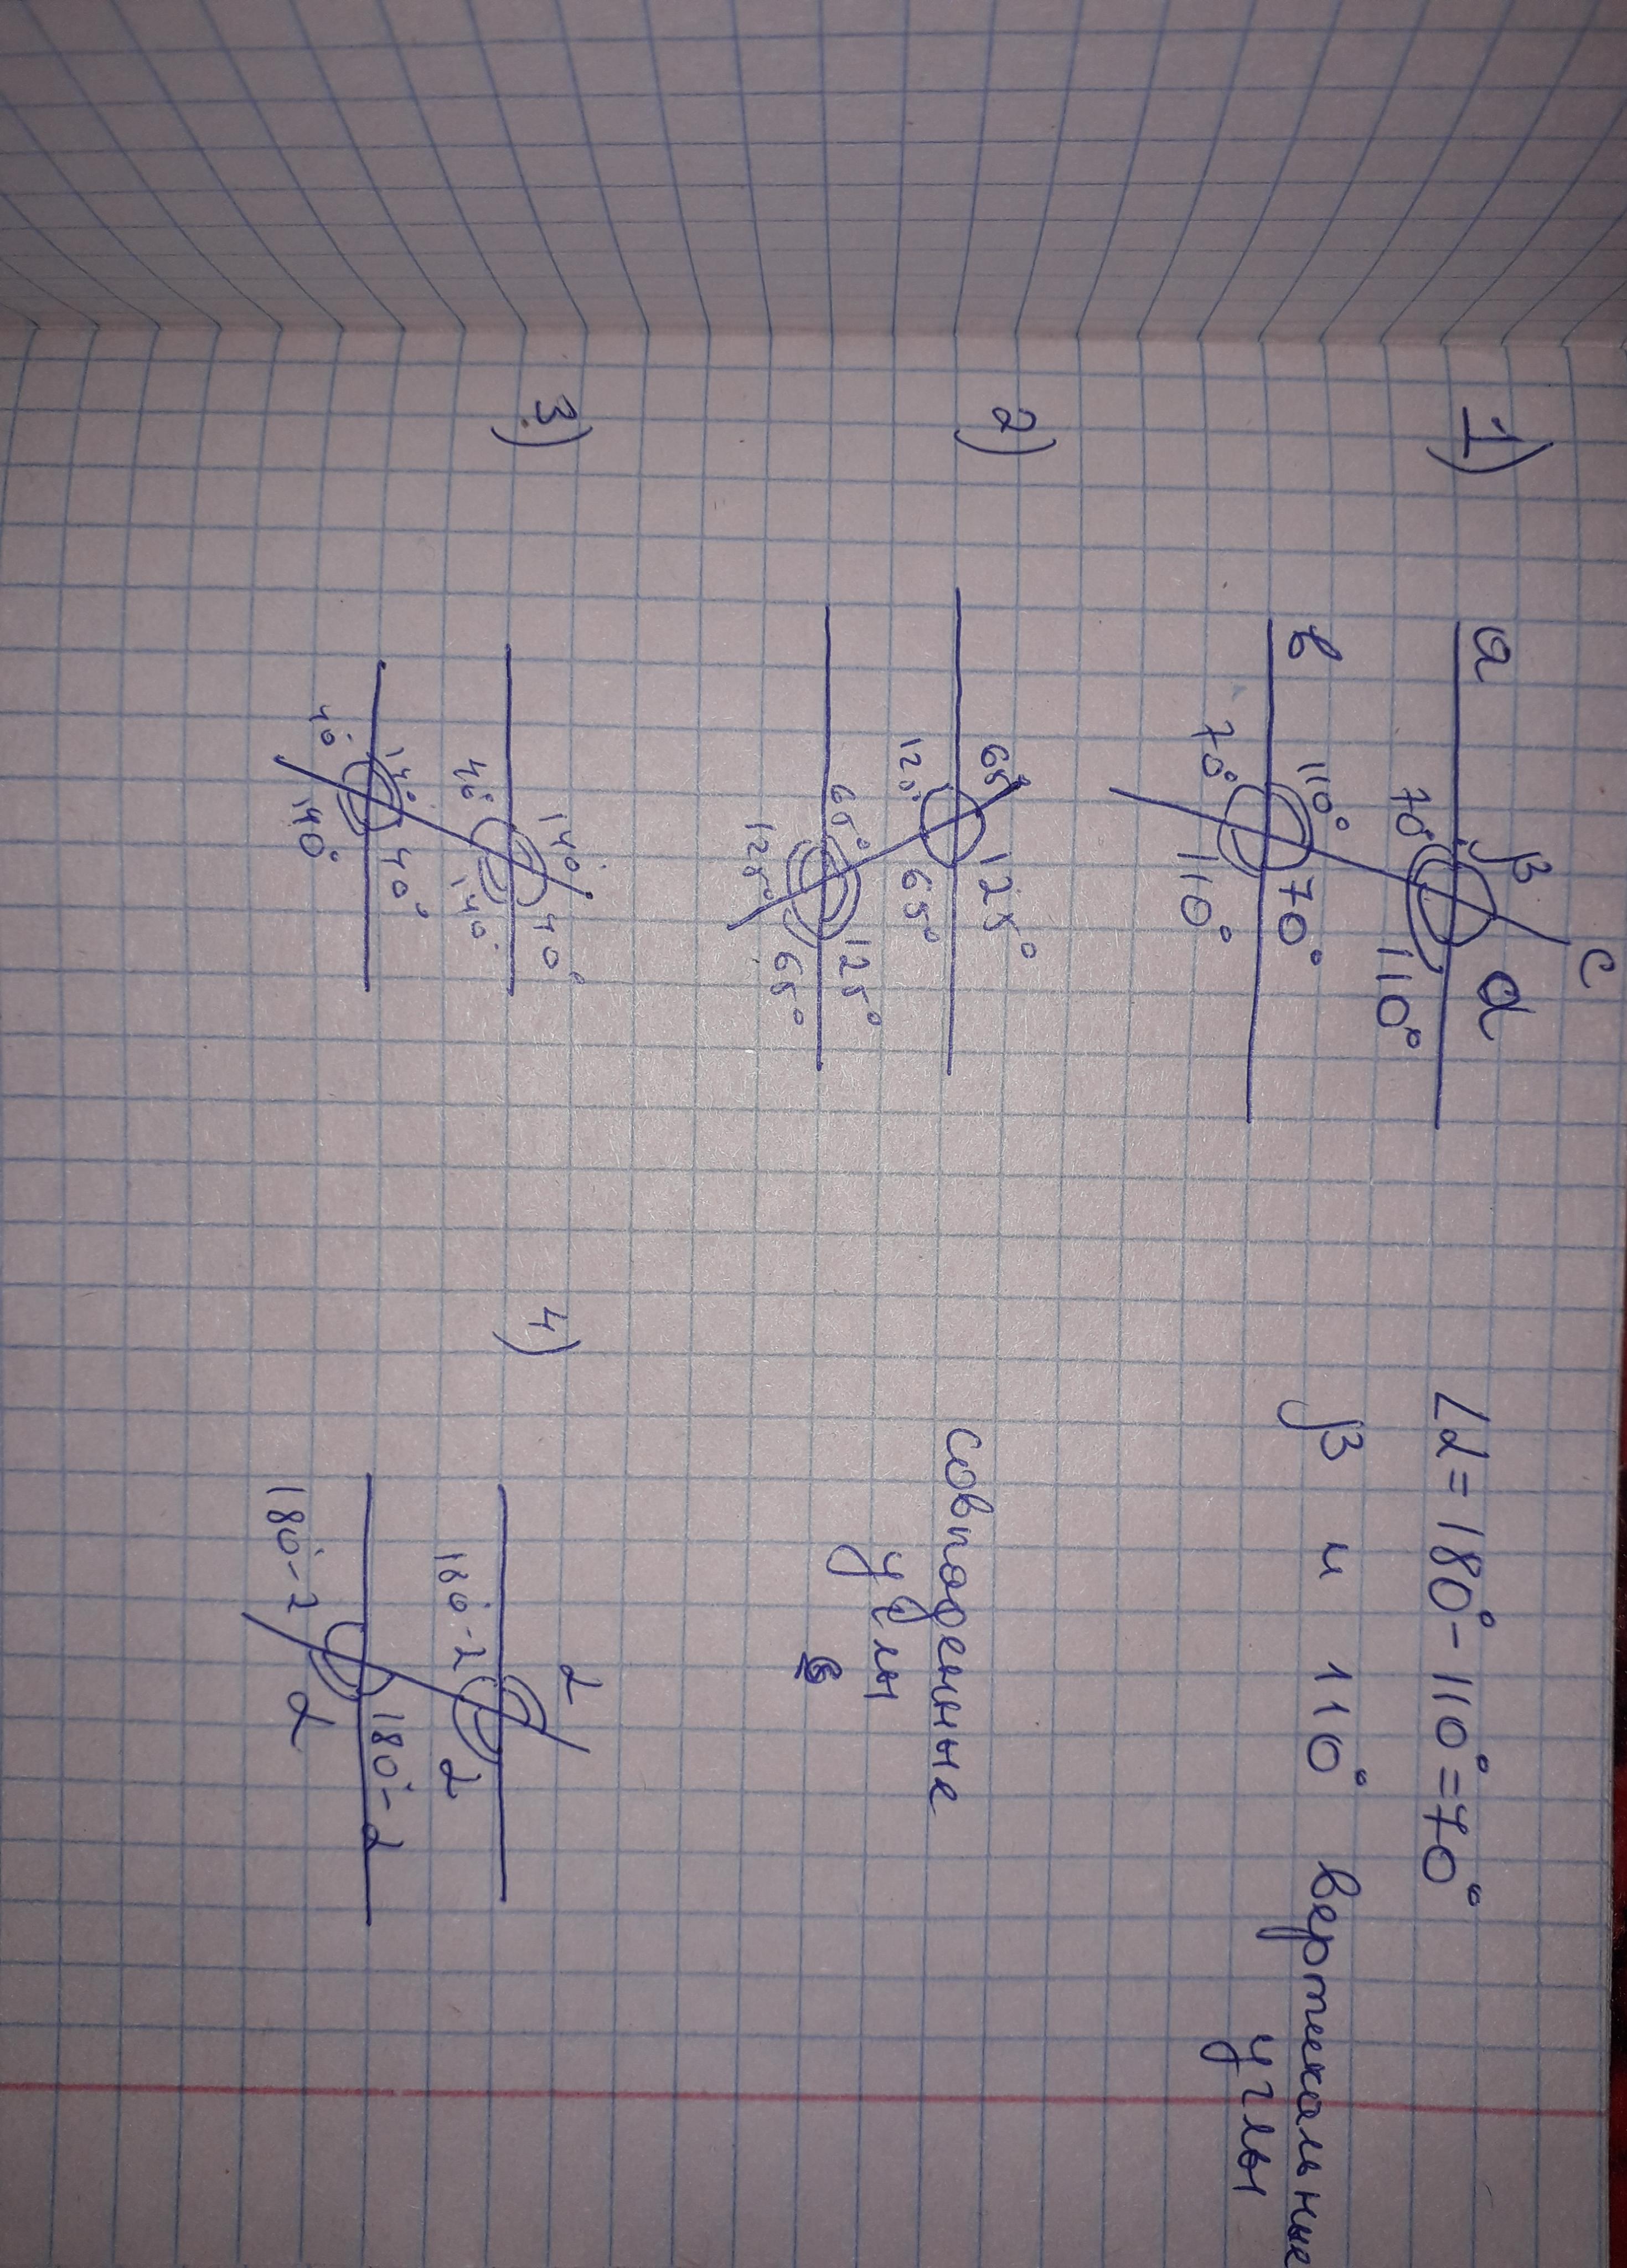 1)
a
β
c
α
70°
110°
в
110°
70°
70°
110°
∠α = 180° - 110° = 70°
β и 110° вертикальные
углы
2)
65°
125°
125°
65°
65°
125°
125°
65°
совподенные
углы
3)
140°
40°
40°
140°
140°
40°
40°
140°
4)
α
180° - α
α
180° - α
180° - α
α